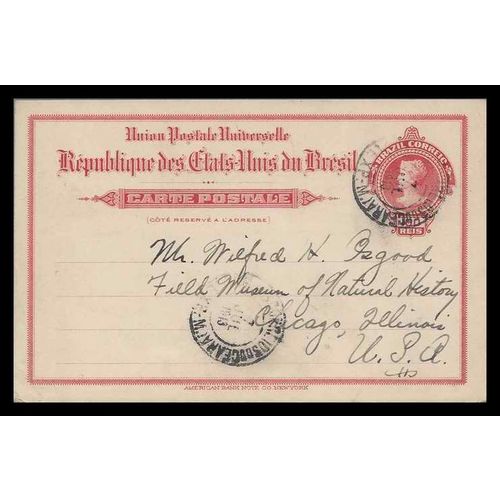 Union Postale Universelle
République des États-Unis du Brésil
CARTE POSTALE
(CÔTÉ RESERVÉ A L'ADRESSE)
BRAZIL CORREIO
REIS
Mr. Wilfred H. Osgood
Field Museum of Natural History
Chicago, Illinois
U.S.A.
AMERICAN BANK NOTE CO. NEW YORK